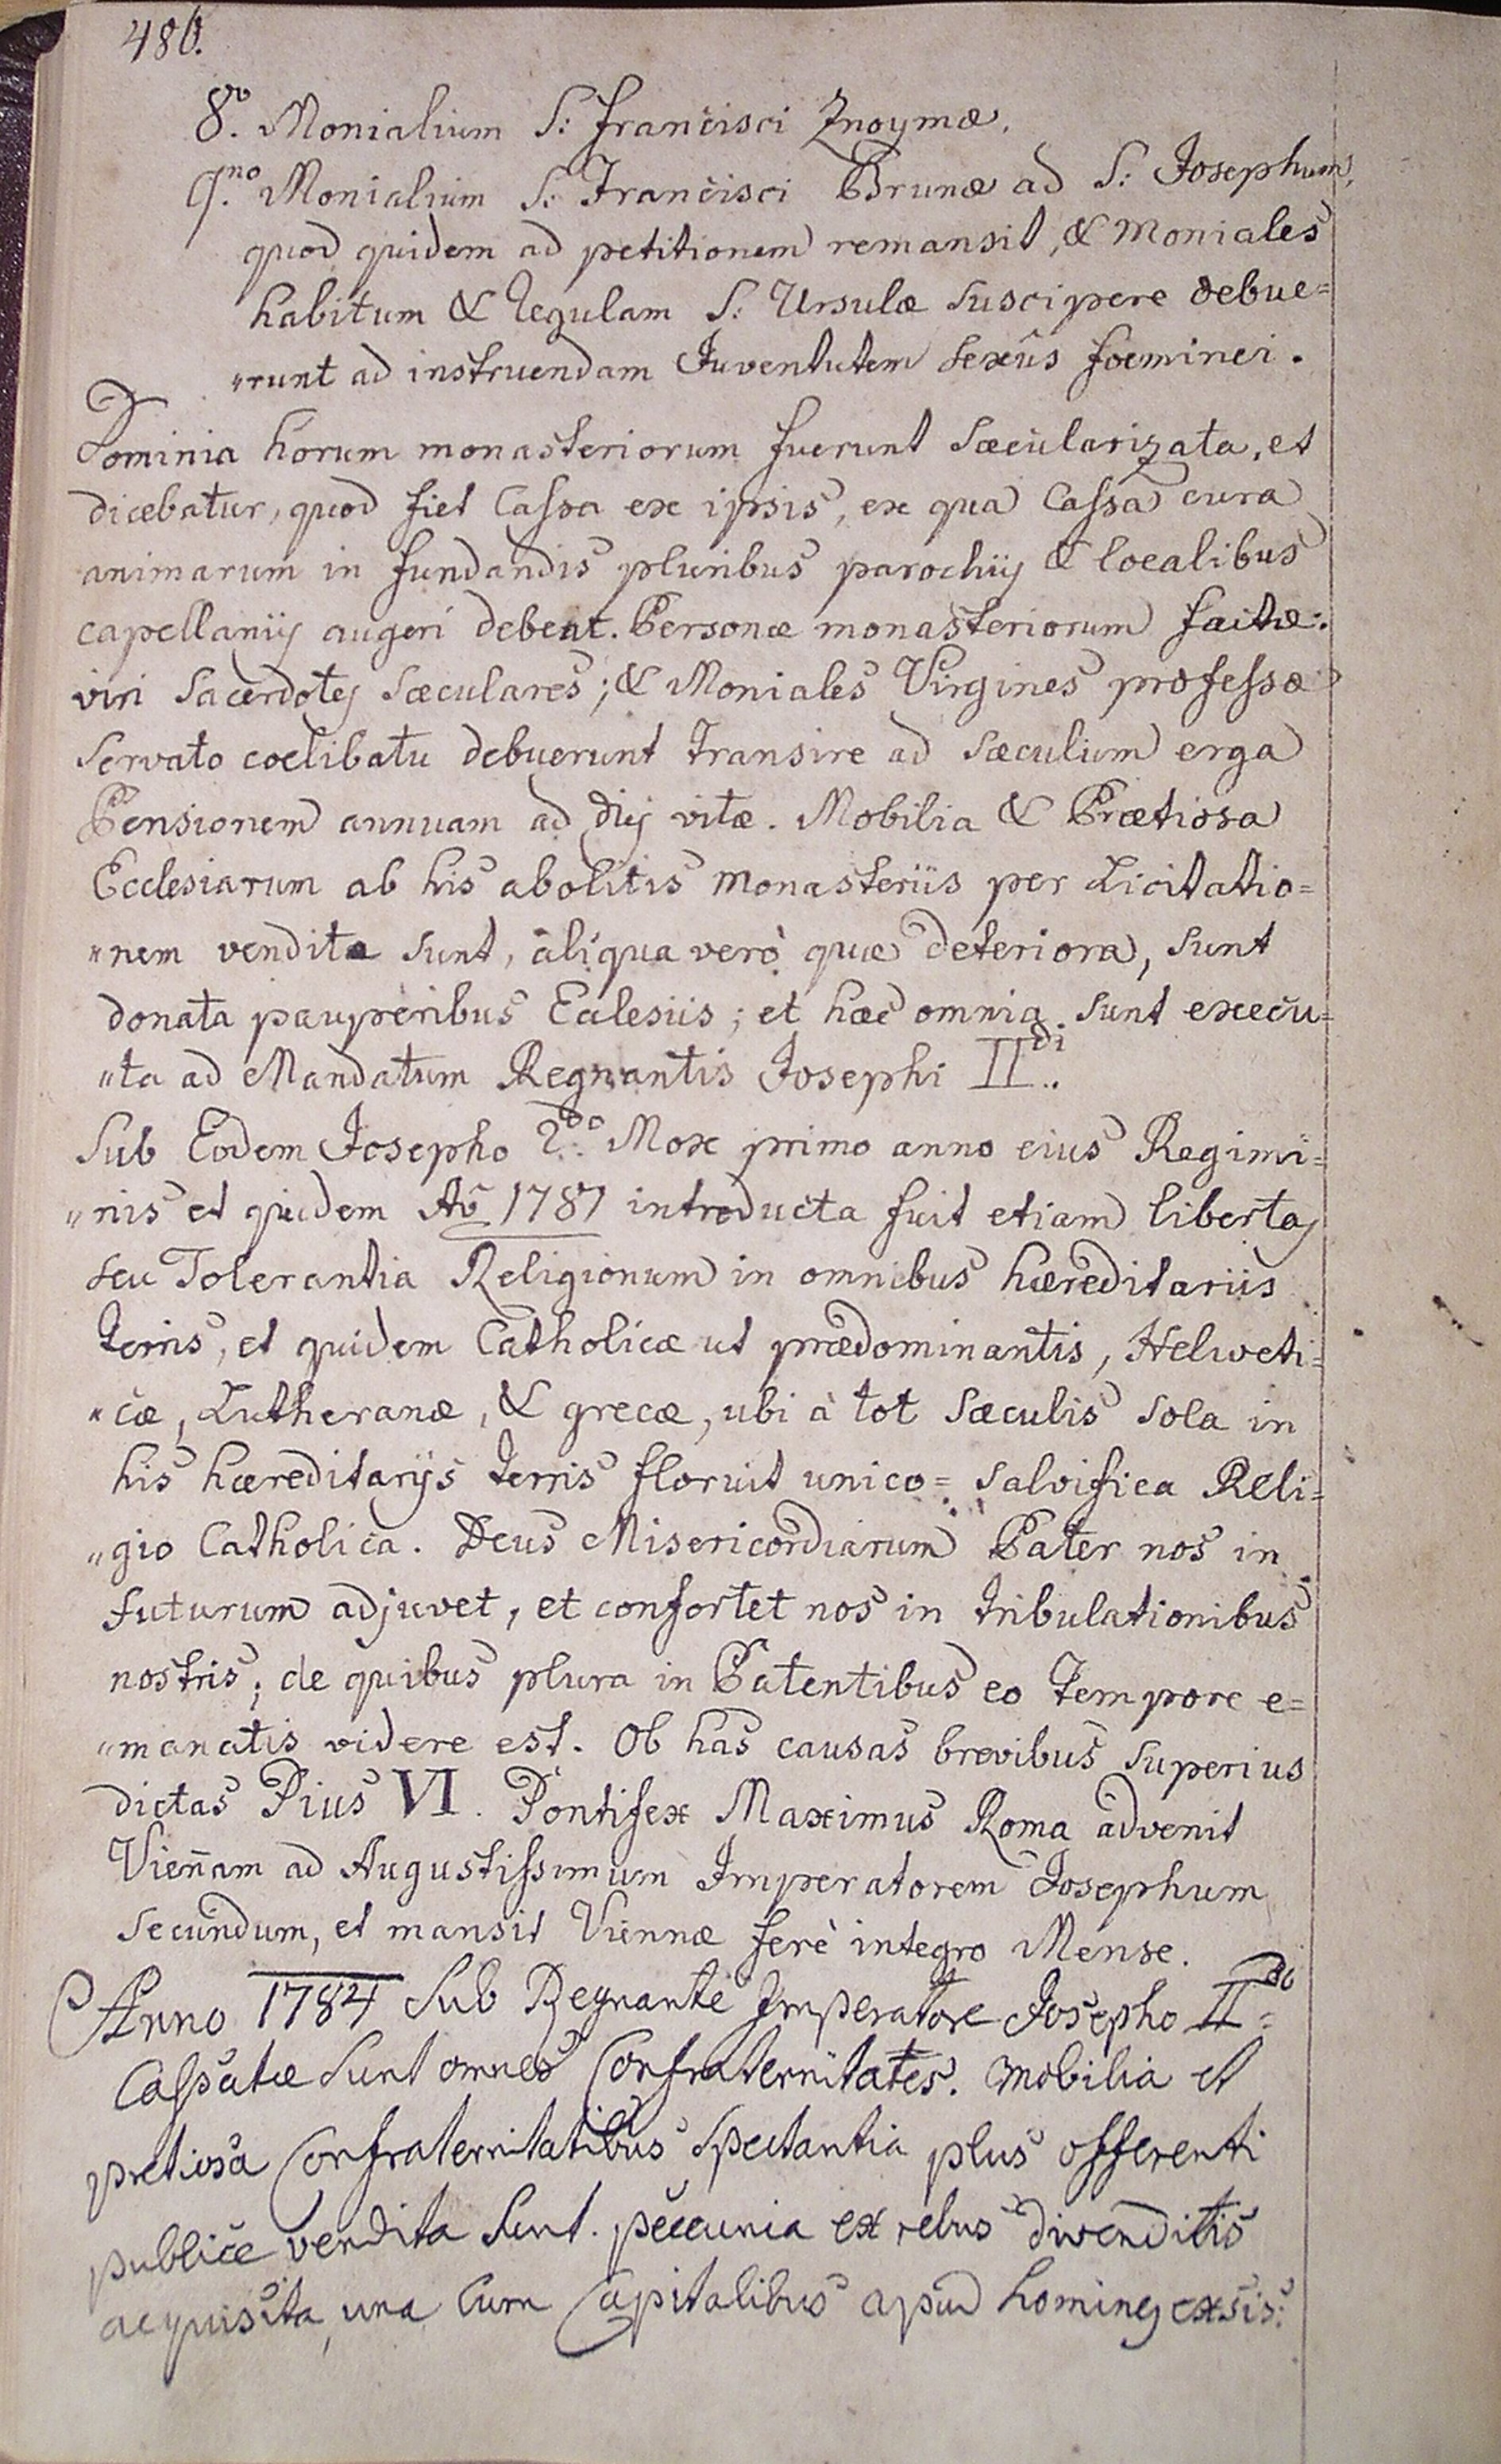 480.
8vo. Monialium S: Francisci Znoymæ.
9no. Monialium S: Francisci Brunæ ad S: Josephum,
quod quidem ad petitionem remansit, & Moniales
habitum & Regulam S: Ursulæ suscipere debue=
"runt ad instruendam Iuventutem sexûs foeminei.
Dominia horum monasteriorum fuerunt Sæcularizata, et
dicebatur, quod fiet Cassa ex ipsis, ex qua Cassa cura
animarum in fundandis pluribus parochijs & localibus
capellanijs augeri debeat. Personæ monasteriorum factæ:
viri Sacerdotes Sæculares; & Moniales Virgines professæ
Servato coelibatu debuerunt transire ad Sæculum erga
Pensionem annuam ad dies vitæ. Mobilia & Prætiosa
Ecclesiarum ab his abolitis monasteriis per Licitatio=
"nem vendita sunt, aliqua verò quæ deteriora, sunt
donata pauperibus Ecclesiis; et hæc omnia sunt execu=
"ta ad Mandatum Regnantis Josephi IIdi..
Sub Eodem Josepho 2do. Mox primo anno eius Regimi=
"nis et quidem Ao 1781 introducta fuit etiam libertas
seu Tolerantia Religionum in omnibus hæreditariis
terris, et quidem Catholicæ ut prædominantis, Helweti=
"cæ, Lutheranæ, & grecæ, ubi à tot Sæculis sola in
his hæreditarijs terris floruit unico= salvifica Reli=
"gio Catholica. Deus Misericordiarum Pater nos in
futurum adjuvet, et confortet nos in tribulationibus
nostris; de quibus plura in Patentibus eo tempore e=
"manatis videre est. Ob has causas brevibus superius
dictas Pius VI. Pontifex Maximus Roma advenit
Vieñam ad Augustissimum Imperatorem Josephum
Secundum, et mansit Viennæ ferè integro Mense.
Anno 1784 Sub Regnante Imperatore Josepho IIdo=
Cassatæ sunt omnes Confraternitates. Mobilia et
pretiosa Confraternitatibus spectantia plus offerenti
publice vendita sunt. pecunia ex rebus divenditis
acquisita, una Cum Capitalibus apud homines exsis: